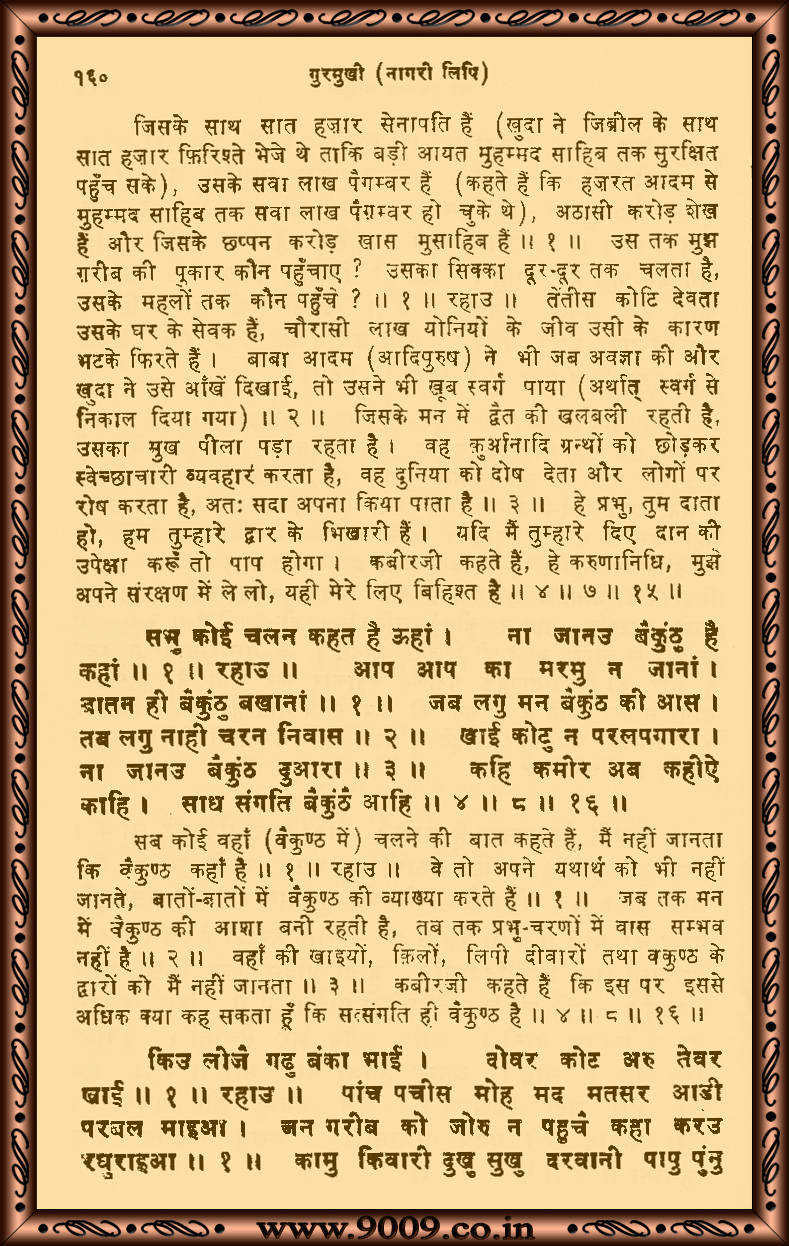 १६० गुरमुखी (नागरी लिपि)
जिसके साथ सात हज़ार सेनापति हैं (खुदा ने जिब्रील के साथ
सात हज़ार फ़िरिश्ते भेजे थे ताकि बड़ी आयत मुहम्मद साहिब तक सुरक्षित
पहुँच सके), उसके सवा लाख पैगम्बर हैं (कहते हैं कि हज़रत आदम से
मुहम्मद साहिब तक सवा लाख पैग़म्बर हो चुके थे), अठासी करोड़ शेख
हैं और जिसके छप्पन करोड़ ख़ास मुसाहिब हैं ॥ १ ॥ उस तक मुझ
ग़रीब की पुकार कौन पहुँचाए ? उसका सिक्का दूर-दूर तक चलता है,
उसके महलों तक कौन पहुँचे ? ॥ १ ॥ रहाउ ॥ तेंतीस कोटि देवता
उसके घर के सेवक हैं, चौरासी लाख योनियों के जीव उसी के कारण
भटके फिरते हैं । बाबा आदम (आदिपुरुष) ने भी जब अवज्ञा की और
खुदा ने उसे आँखें दिखाई, तो उसने भी खूब स्वर्ग पाया (अर्थात् स्वर्ग से
निकाल दिया गया) ॥ २ ॥ जिसके मन में द्वैत की खलबली रहती है,
उसका मुख पीला पड़ा रहता है । वह क़ुर्आनादि ग्रन्थों को छोड़कर
स्वेच्छाचारी व्यवहार करता है, वह दुनिया को दोष देता और लोगों पर
रोष करता है, अतः सदा अपना किया पाता है ॥ ३ ॥ हे प्रभु, तुम दाता
हो, हम तुम्हारे द्वार के भिखारी हैं । यदि मैं तुम्हारे दिए दान की
उपेक्षा करूँ तो पाप होगा । कबीरजी कहते हैं, हे करुणानिधि, मुझे
अपने संरक्षण में ले लो, यही मेरे लिए बिहिश्त है ॥ ४ ॥ ७ ॥ १५ ॥
सभु कोई चलन कहत है ऊहां । ना जानउ बैकुंठु है
कहां ॥ १ ॥ रहाउ ॥ आप आप का मरमु न जानां ।
बातन ही बैकुंठु बखानां ॥ १ ॥ जब लगु मन बैकुंठ की आस ।
तब लगु नाही चरन निवास ॥ २ ॥ खाई कोटु न परलपगारा ।
ना जानउ बैकुंठ दुआरा ॥ ३ ॥ कहि कमीर अब कहीऐ
काहि । साध संगति बैकुंठै आहि ॥ ४ ॥ ८ ॥ १६ ॥
सब कोई वहाँ (वैकुण्ठ में) चलने की बात कहते हैं, मैं नहीं जानता
कि वैकुण्ठ कहाँ है ॥ १ ॥ रहाउ ॥ वे तो अपने यथार्थ को भी नहीं
जानते, बातों-बातों में वैकुण्ठ की व्याख्या करते हैं ॥ १ ॥ जब तक मन
में वैकुण्ठ की आशा बनी रहती है, तब तक प्रभु-चरणों में वास सम्भव
नहीं है ॥ २ ॥ वहाँ की खाइयों, क़िलों, लिपी दीवारों तथा वकुण्ठ के
द्वारों को मैं नहीं जानता ॥ ३ ॥ कबीरजी कहते हैं कि इस पर इससे
अधिक क्या कह सकता हूँ कि सत्संगति ही वैकुण्ठ है ॥ ४ ॥ ८ ॥ १६ ॥
किउ लीजै गढु बंका भाई । दोवर कोट अरु तेवर
खाई ॥ १ ॥ रहाउ ॥ पांच पचीस मोह मद मतसर आडी
परबल माइआ । जन गरीब को जोरु न पहुचै कहा करउ
रघुराइआ ॥ १ ॥ कामु किवारी दुखु सुखु दरवानी पापु पुंनु
www.9009.co.in